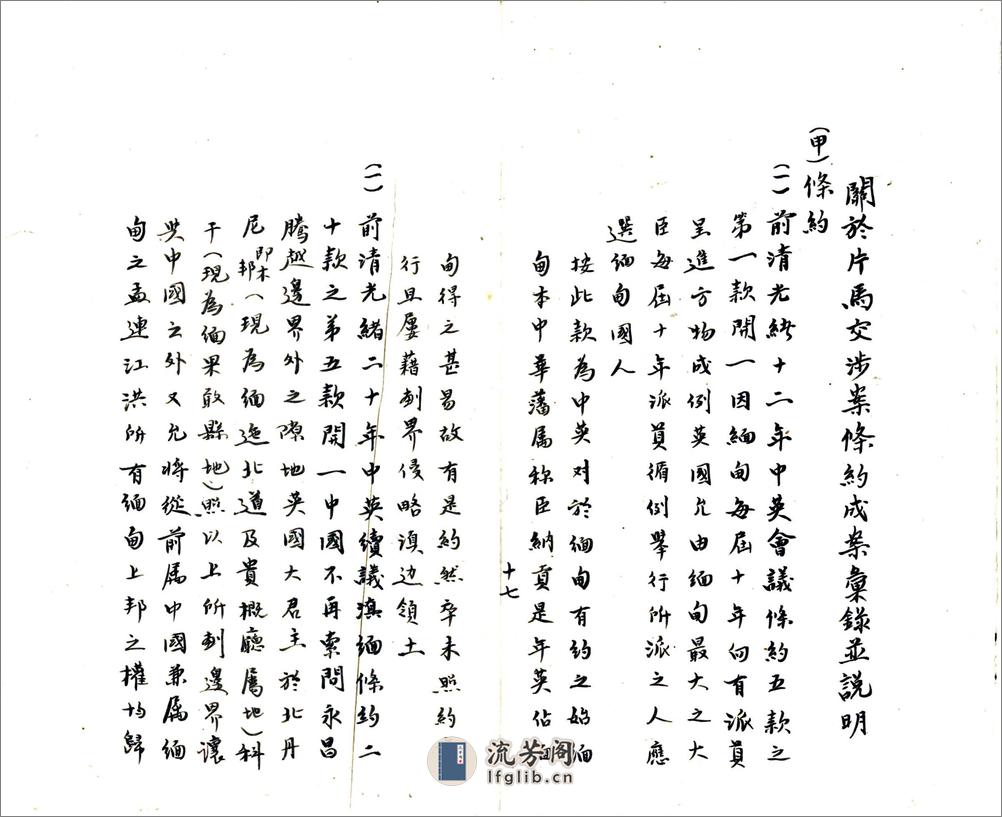 關於片馬交涉案條約成案彙錄並說明
(甲)條約
(一)前清光緒十二年中英會議條約五款之
第一款開一因緬甸每屆十年向有派員
呈進方物成例英國允由緬甸最大之大
臣每屆十年派員循例舉行所派之人應
選緬甸國人
按此款為中英对於緬甸有約之始緬
甸本中華藩属称臣納貢是年英佔
十七
甸得之甚易故有是約然卒未照約
行且屢藉划界侵略滇边領土
(一)前清光緒二十年中英續議滇緬條約二
十款之第五款開一中國不再索問永昌
騰越邊界外之隙地英國大君主於北丹
尼即木邦(現為緬迤北道及貴概廳屬地)科
干(現為緬果敢縣地)照以上所划邊界讓
與中國之外又允將從前属中國兼属緬
甸之孟連江洪所有緬甸上邦之權均歸
流芳阁
lfglib.cn